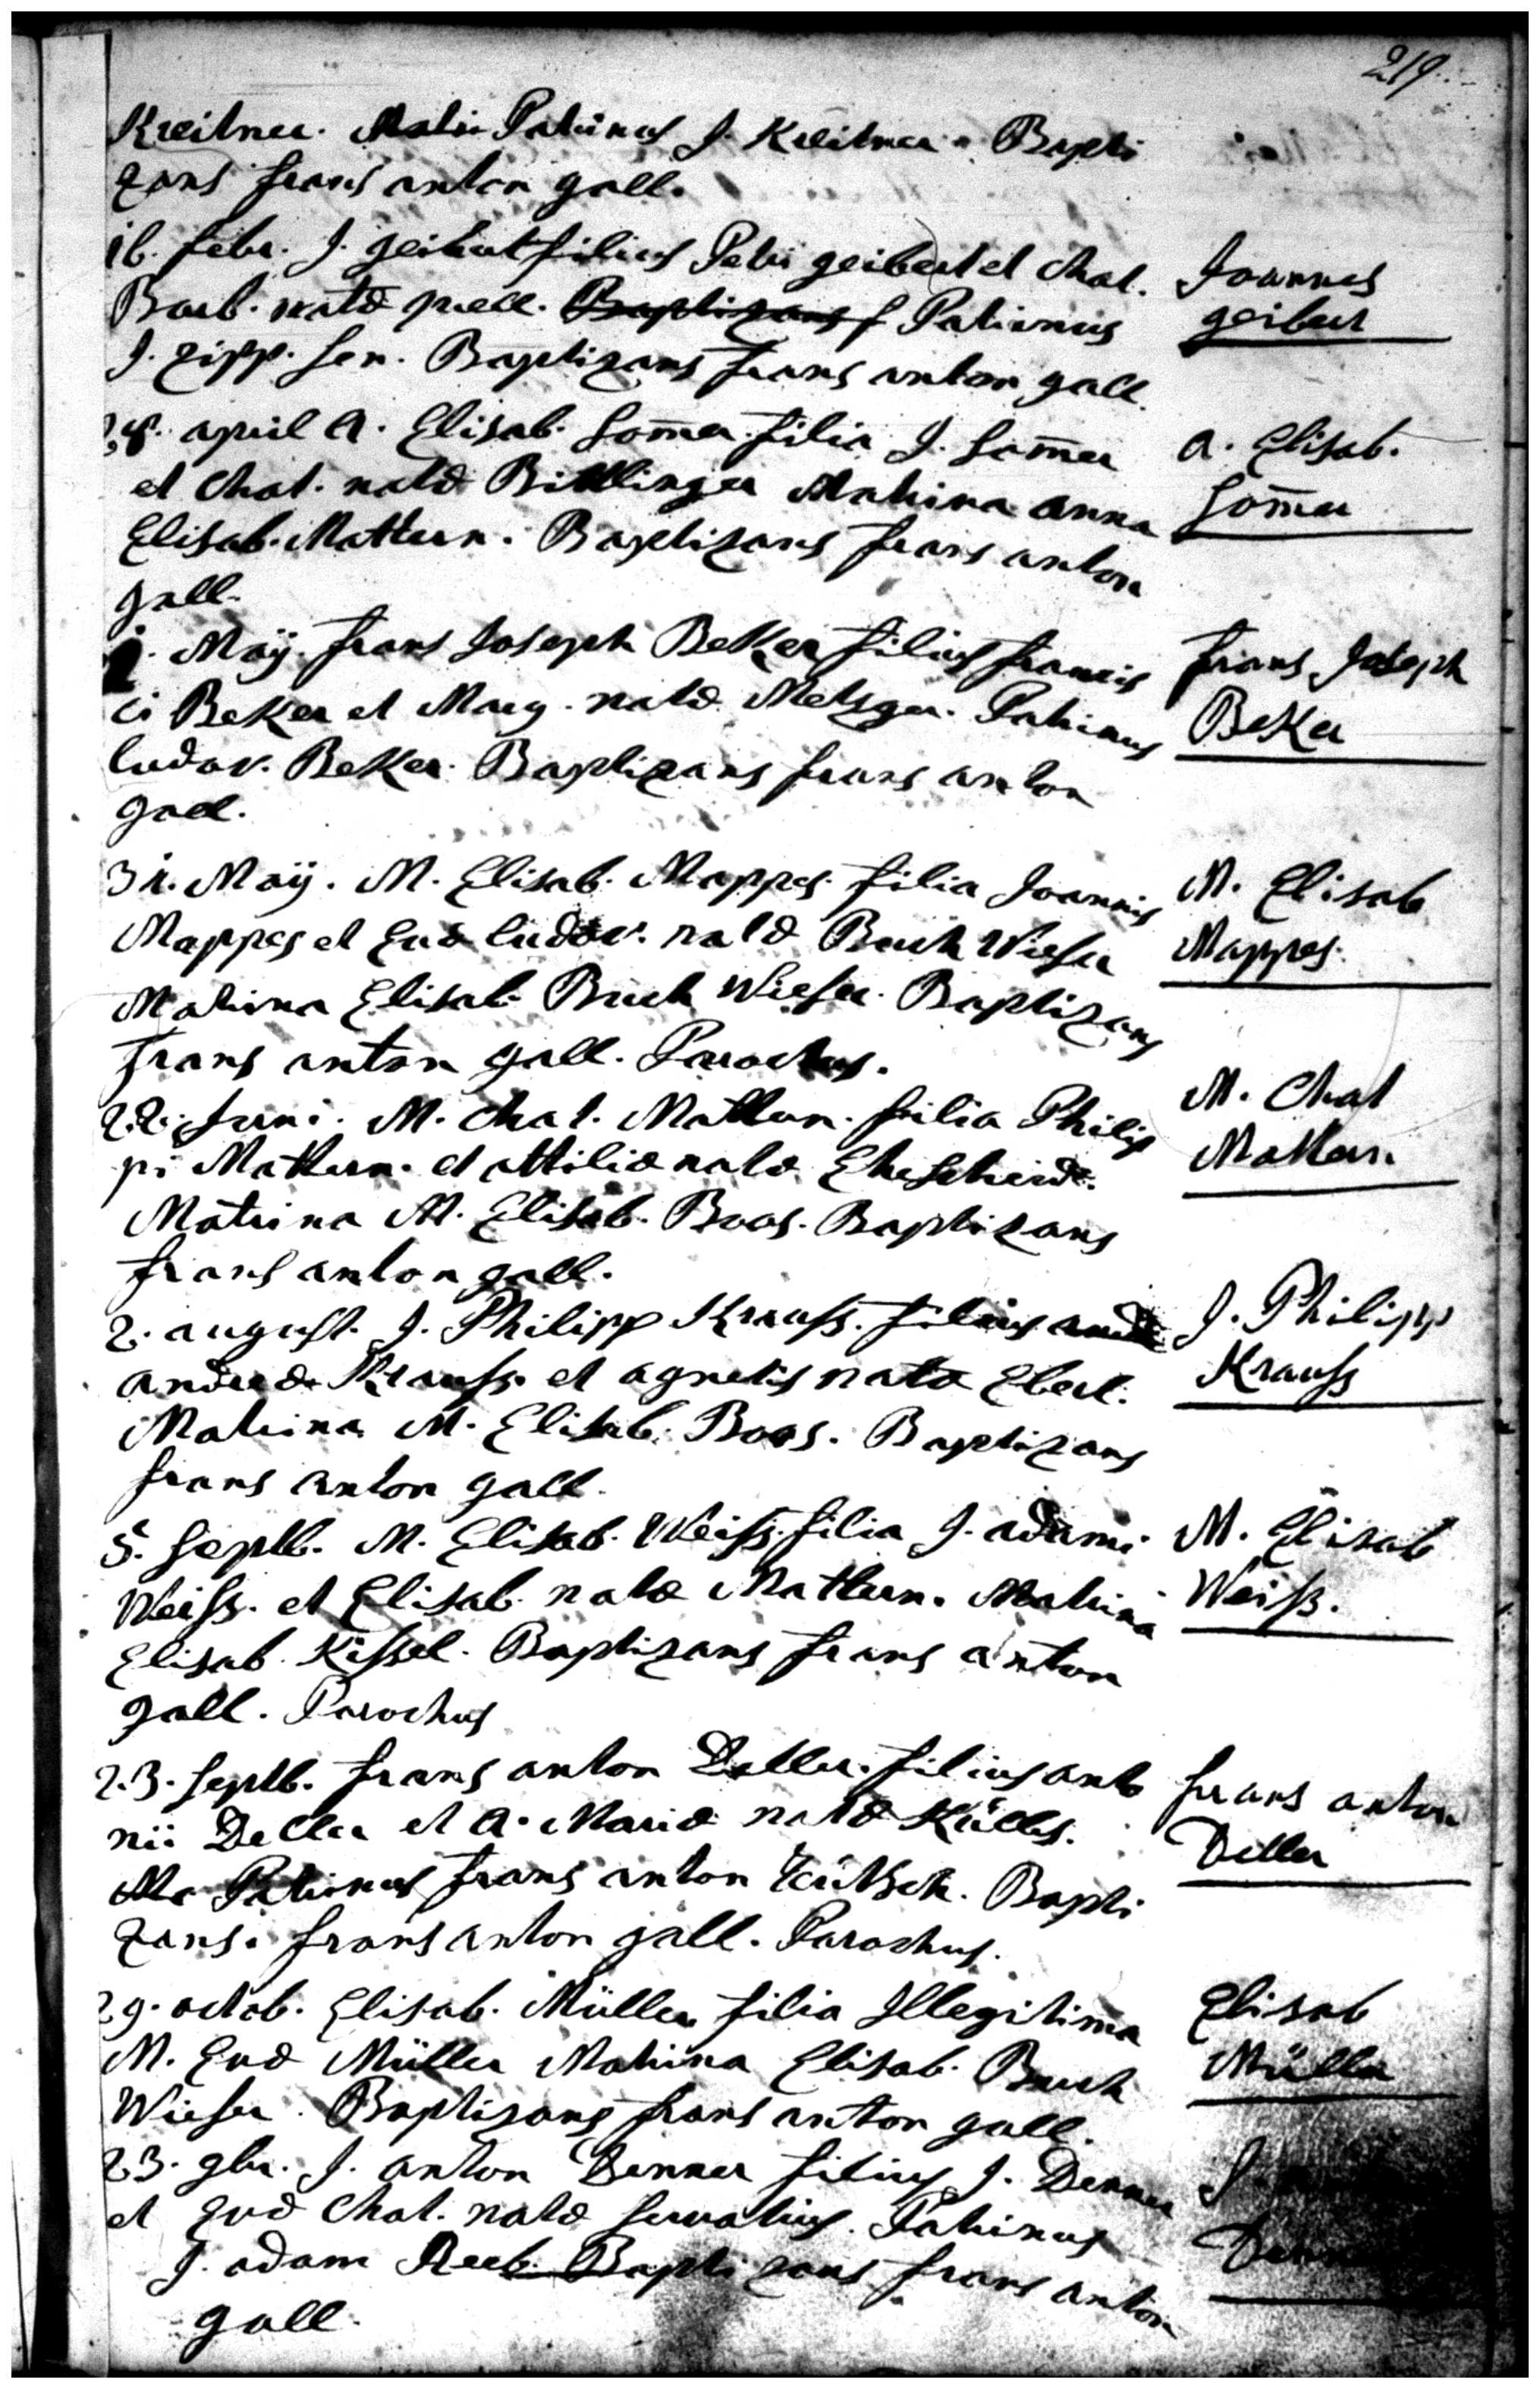 219.
Kreitner. Patrinus J. Kreitner. Bapti
zans frans anton gall.
16. febr. J. geibert filius Petri geibert et Chat.
Barb. natæ prell. Baptizans Patrinus
J. zipp. sen. Baptizans frans anton gall.
Joannes
geibert
april A. Elisab. Som̄er filia J. Som̄er
et Chat. natæ Bittlinger Matrina anna
Elisab. Mattern. Baptizans frans anton
gall.
A. Elisab.
Som̄er
Maÿ. frans Joseph Beker filius francis
ci Beker et Marg. natæ Metzger. Patrinus
ludov. Beker. Baptizans frans anton
gall.
frans Joseph
Beker
31. Maÿ. M. Elisab. Mappes filia Joannis
Mappes et Evæ ludov. natæ Buch Wieser
Matrina Elisab. Buch Wieser. Baptizans
frans anton gall. Parochus.
M. Elisab
Mappes.
22. Juni. M. Chat. Mattern. filia Philip
pi Mattern. et attiliæ natæ Ehescheid.
Matrina M. Elisab. Boos. Baptizans
frans anton gall.
M. Chat
Mattern
2. august. J. Philipp Krauss. filius
andreæ Krauss. et agnetis natæ Ebert.
Matrina M. Elisab. Boos. Baptizans
frans anton gall.
J. Philipp
Krauss
5. septb. M. Elisab. Weiss. filia J. adami.
Weiss. et Elisab. natæ Mattern. Matrina
Elisab. Kissel. Baptizans frans anton
gall. Parochus
M. Elisab
Weiss.
23. septb. frans anton Deller. filius anto
nii Deller et A. Mariæ natæ
Patrinus frans anton Bapti
zans. frans anton gall. Parochus.
frans anton
Deller
29. octob. Elisab. Müller filia Illegitima
M. Evæ Müller Matrina Elisab. Buch
Wieser. Baptizans frans anton gall.
Elisab
Müller
23. 9br. J. anton Denner filius J. Denner
et Evæ Chat. natæ servatius. Patrinus
J. adam Reeb. Baptizans frans anton
gall.
J.